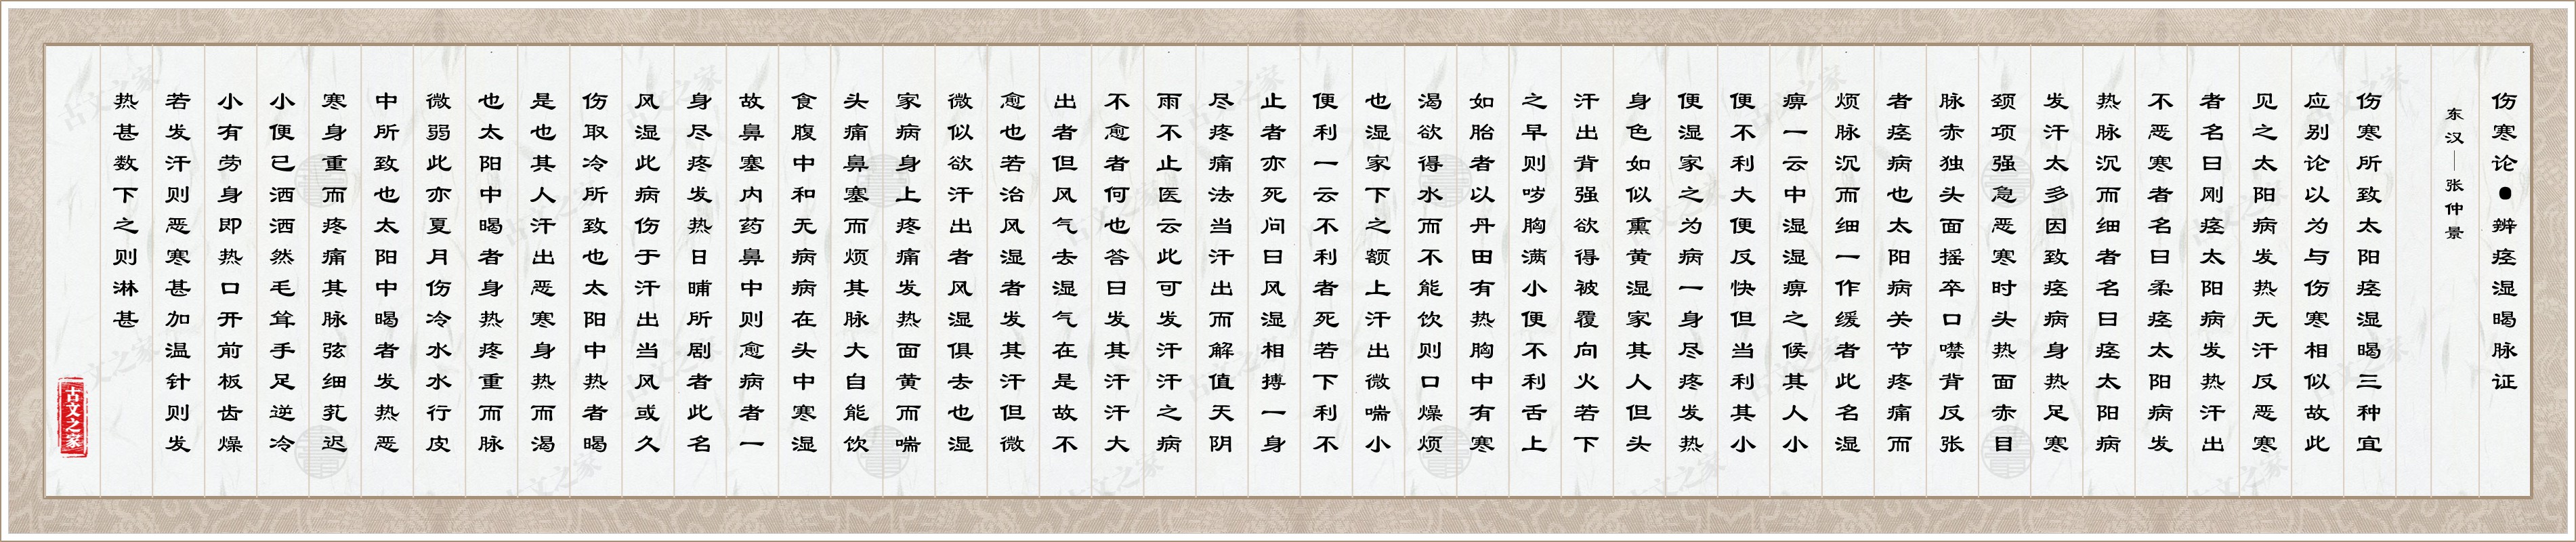 伤寒论●辨痉湿暍脉证
东汉—张仲景
伤寒所致太阳痉湿暍三种宜
应别论以为与伤寒相似故此
见之太阳病发热无汗反恶寒
者名曰刚痉太阳病发热汗出
不恶寒者名曰柔痉太阳病发
热脉沉而细者名曰痉太阳病
发汗太多因致痉病身热足寒
颈项强急恶寒时头热面赤目
脉赤独头面摇卒口噤背反张
者痉病也太阳病关节疼痛而
烦脉沉而细一作缓者此名湿
痹一云中湿湿痹之候其人小
便不利大便反快但当利其小
便湿家之为病一身尽疼发热
身色如似熏黄湿家其人但头
汗出背强欲得被覆向火若下
之早则哕胸满小便不利舌上
如胎者以丹田有热胸中有寒
渴欲得水而不能饮则口燥烦
也湿家下之额上汗出微喘小
便利一云不利者死若下利不
止者亦死问曰风湿相搏一身
尽疼痛法当汗出而解值天阴
雨不止医云此可发汗汗之病
不愈者何也答曰发其汗汗大
出者但风气去湿气在是故不
愈也若治风湿者发其汗但微
微似欲汗出者风湿俱去也湿
家病身上疼痛发热面黄而喘
头痛鼻塞而烦其脉大自能饮
食腹中和无病病在头中寒湿
故鼻塞内药鼻中则愈病者一
身尽疼发热日晡所剧者此名
风湿此病伤于汗出当风或久
伤取冷所致也太阳中热者暍
是也其人汗出恶寒身热而渴
也太阳中暍者身热疼重而脉
微弱此亦夏月伤冷水水行皮
中所致也太阳中暍者发热恶
寒身重而疼痛其脉弦细芤迟
小便已洒洒然毛耸手足逆冷
小有劳身即热口开前板齿燥
若发汗则恶寒甚加温针则发
热甚数下之则淋甚
古文之家